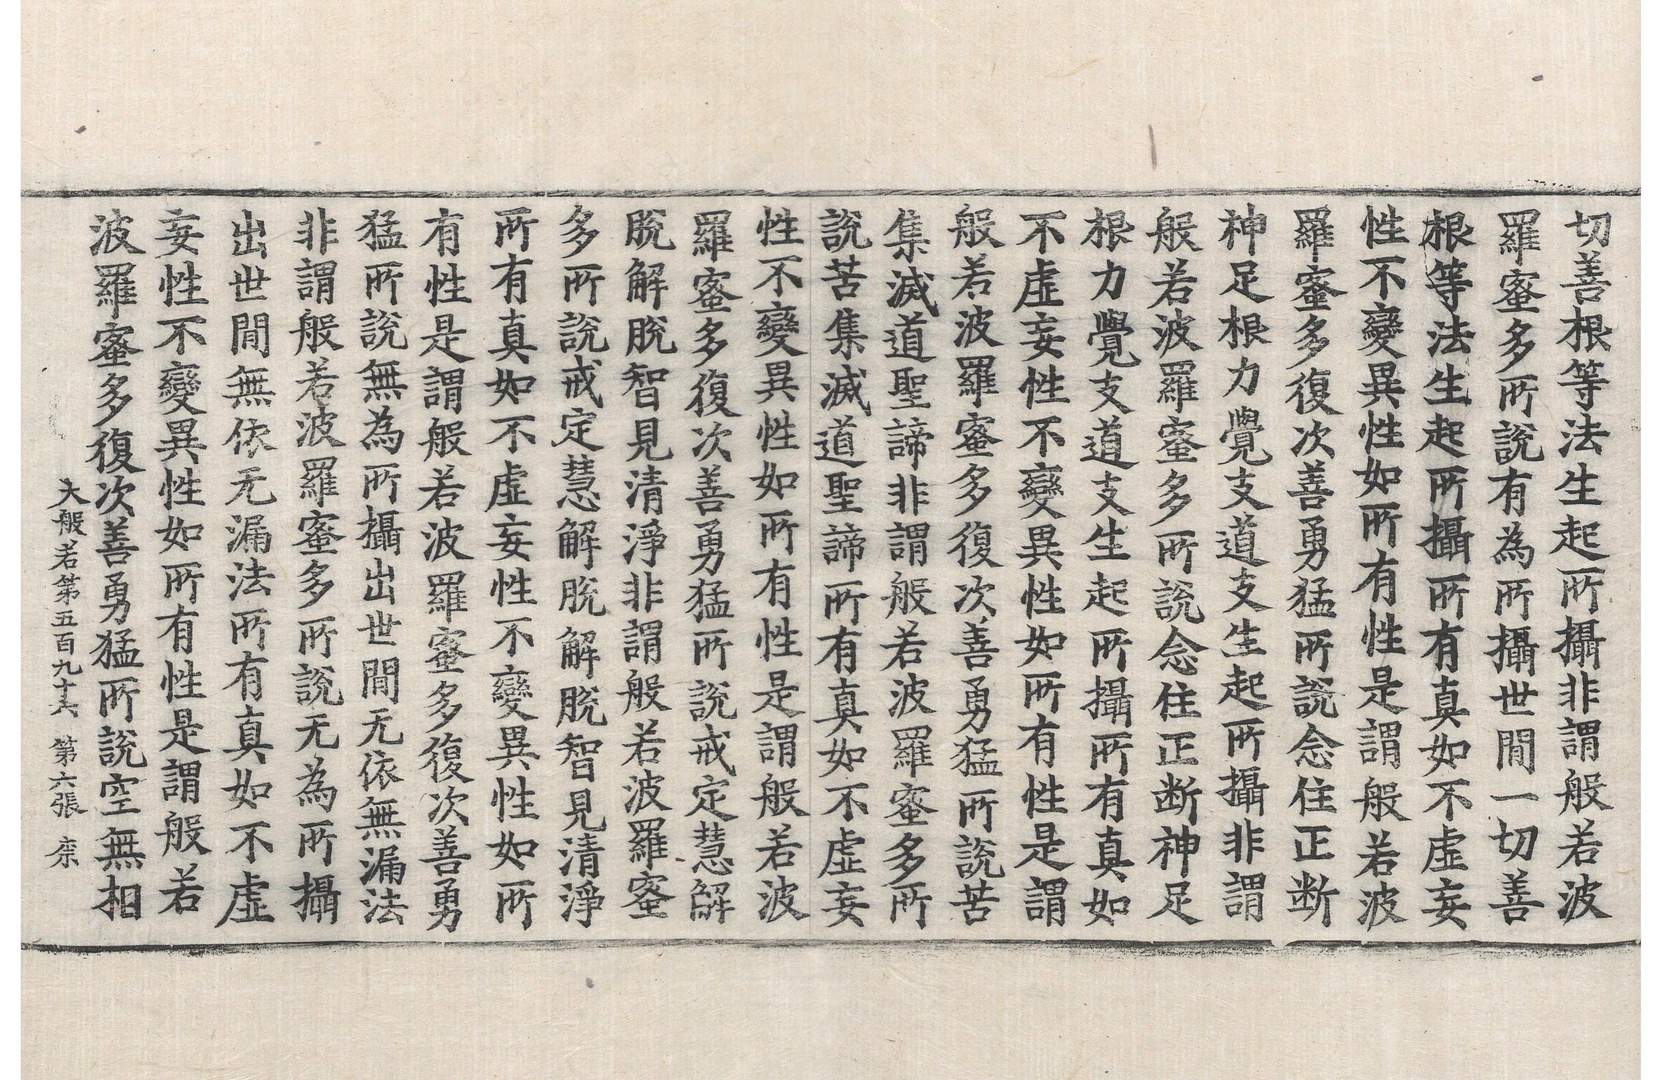 切善根等法生起所攝非謂般若波
羅蜜多所說有為所攝世間一切善
根等法生起所攝所有真如不虛妄
性不變異性如所有性是謂般若波
羅蜜多復次善勇猛所說念住正斷
神足根力覺支道支生起所攝非謂
般若波羅蜜多所說念住正斷神足
根力覺支道支生起所攝所有真如
不虛妄性不變異性如所有性是謂
般若波羅蜜多復次善勇猛所說苦
集滅道聖諦非謂般若波羅蜜多所
說苦集滅道聖諦所有真如不虛妄
性不變異性如所有性是謂般若波
羅蜜多復次善勇猛所說戒定慧解
脫解脫智見清淨非謂般若波羅蜜
多所說戒定慧解脫解脫智見清淨
所有真如不虛妄性不變異性如所
有性是謂般若波羅蜜多復次善勇
猛所說無為所攝出世間无依無漏法
非謂般若波羅蜜多所說无為所攝
出世間無依无漏法所有真如不虛
妄性不變異性如所有性是謂般若
波羅蜜多復次善勇猛所說空無相
大般若第五百九十六 第六張 柰